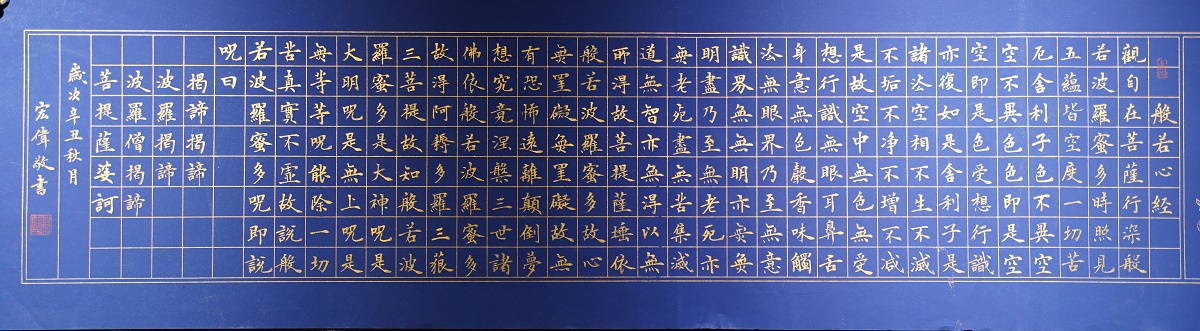 般若心経
觀自在菩薩行深般
若波羅蜜多時照見
五蘊皆空度一切苦
厄舍利子色不異空
空不異色色即是空
空即是色受想行識
亦復如是舍利子是
諸法空相不生不滅
不垢不净不增不减
是故空中無色無受
想行識無眼耳鼻舌
身意無色聲香味觸
法無眼界乃至無意
識界無無明亦無無
明盡乃至無老死亦
無老死盡無苦集滅
道無智亦無得以無
所得故菩提薩埵依
般若波羅蜜多故心
無罣礙無罣礙故無
有恐怖遠離顛倒夢
想究竟涅槃三世諸
佛依般若波羅蜜多
故得阿耨多羅三藐
三菩提故知般若波
羅蜜多是大神呪是
大明呪是無上呪是
無等等呪能除一切
苦真實不虛故說般
若波羅蜜多呪即說
呪曰
揭諦揭諦
波羅揭諦
波羅僧揭諦
菩提薩婆訶
歲次辛丑秋月
宏偉敬書